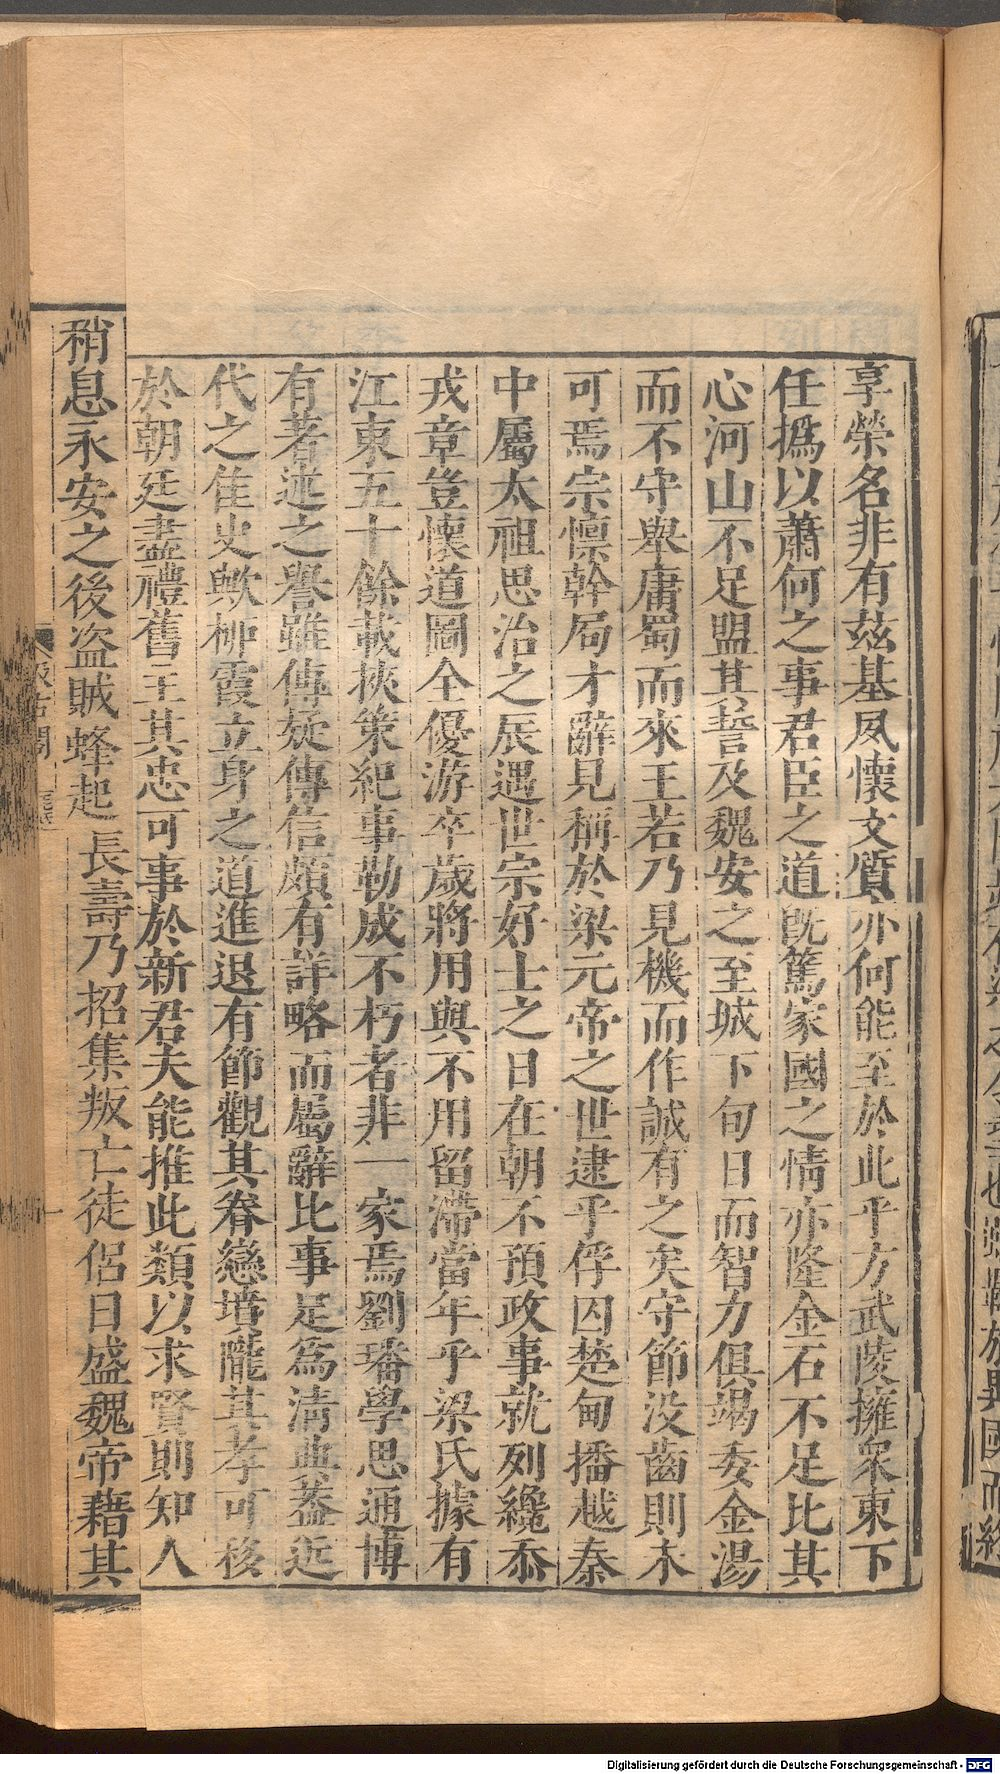 享榮名非有兹基夙懷文質亦何能至於此乎方武陵擁眾東下
任撝以蕭何之事君臣之道旣篤家國之情亦隆金石不足比其
心河山不足盟其誓及魏安之至城下旬日而智力俱竭委金湯
而不守舉庸蜀而來王若乃見機而作誠有之矣守節没齒則未
可焉宗懍幹局才辭見稱於梁元帝之世逮乎俘囚楚甸播越秦
中屬太祖思治之辰遇世宗好士之日在朝不預政事就列纔忝
戎章豈懷道圖全優游卒歲將用與不用留滯當年乎梁氏據有
江東五十餘載挾策紀事勒成不朽者非一家焉劉璠學思通博
有著述之譽雖傳疑傳信頗有詳略而屬辭比事足爲清典蓋近
代之佳史歟柳霞立身之道進退有節觀其眷戀墳隴其孝可移
於朝廷盡禮舊主其忠可事於新君夫能推此類以求賢則知人
稍息永安之後盜賊蜂起長壽乃招集叛亡徒侶日盛魏帝藉其
汲古閣
Digitalisierung gefördert durch die Deutsche Forschungsgemeinschaft - DFG